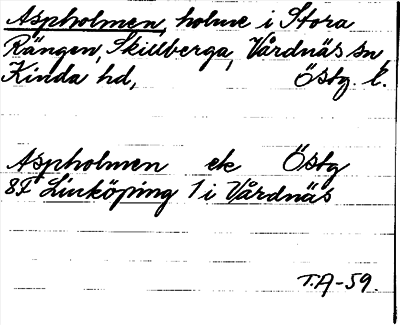 Aspholmen, holme i Stora
Rängen, Skillberga, Vårdnäs sn,
Kinda hd, Östg. l.
Aspholmen ek Östg
8F Linköping 1 i Vårdnäs
T.A-59.